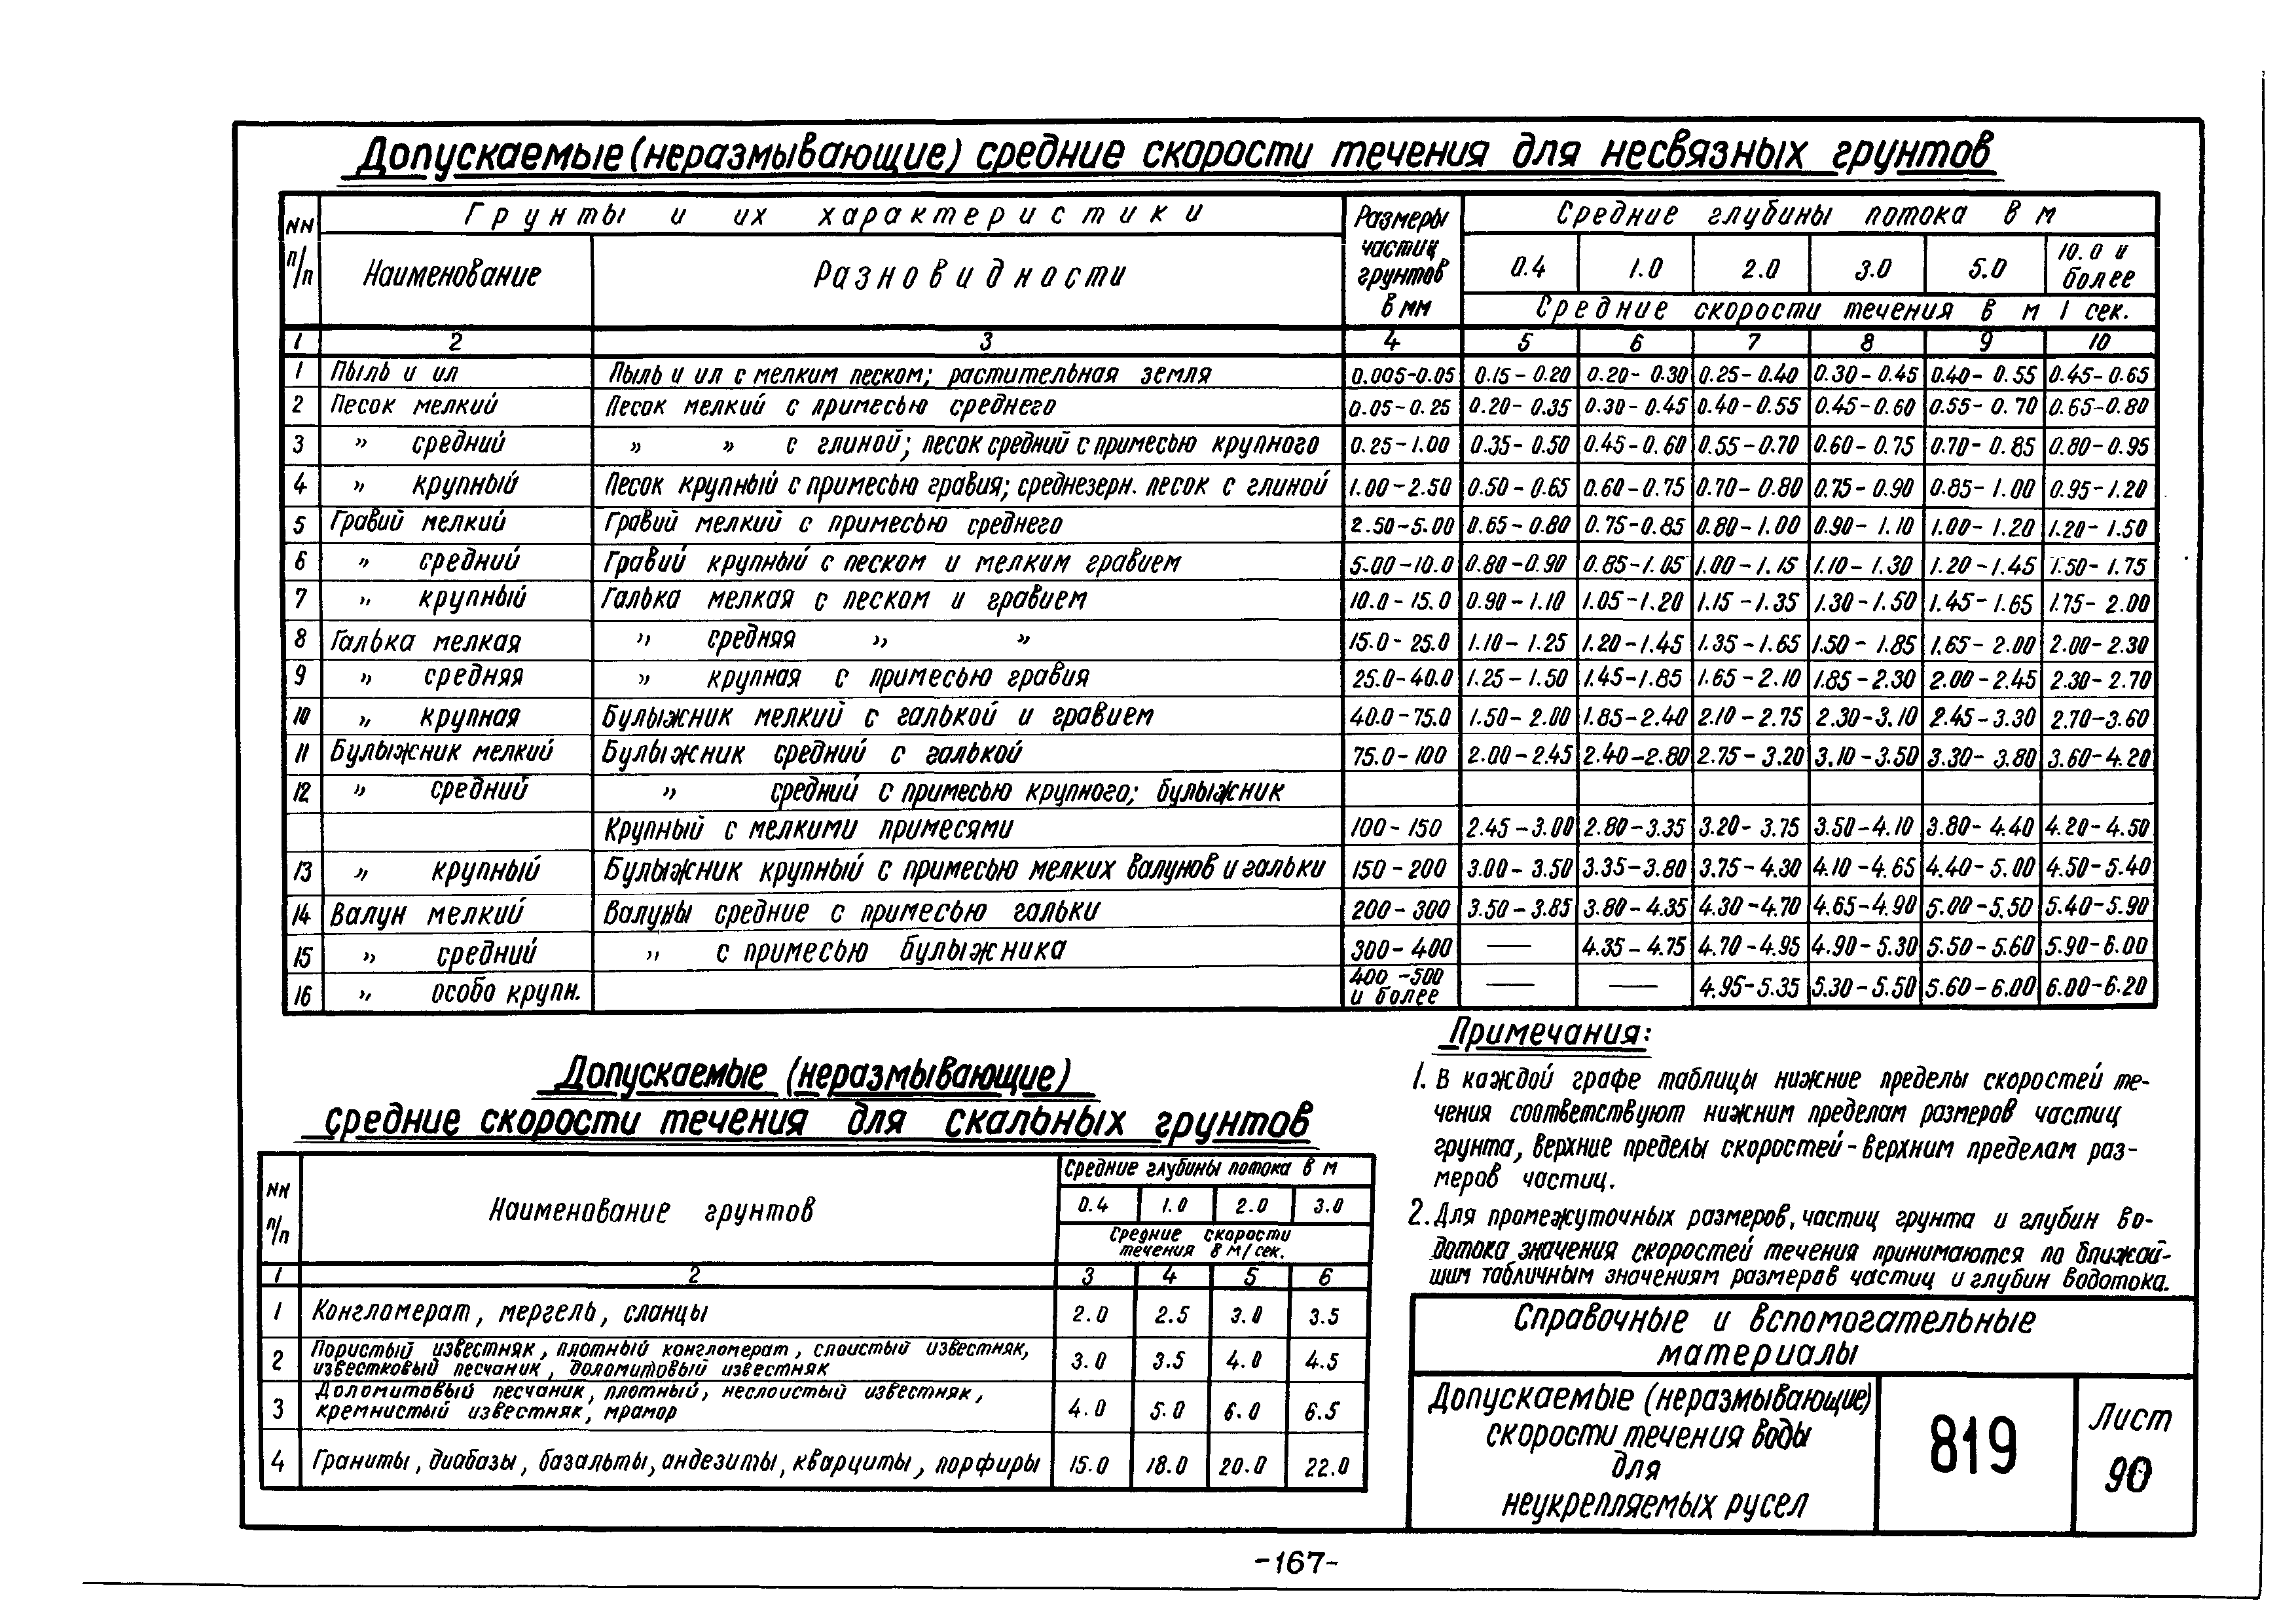 Допускаемые (неразмывающие) средние скорости течения для несвязных грунтов
NN п/п | Грунты и их характеристики | Размеры частиц грунтов в мм | Средние глубины потока в м
Наименование | Разновидности | 0.4 | 1.0 | 2.0 | 3.0 | 5.0 | 10.0 и более
Средние скорости течения в м/сек.
1 | 2 | 3 | 4 | 5 | 6 | 7 | 8 | 9 | 10
1 | Пыль и ил | Пыль и ил с мелким песком; растительная земля | 0.005-0.05 | 0.15-0.20 | 0.20-0.30 | 0.25-0.40 | 0.30-0.45 | 0.40-0.55 | 0.45-0.65
2 | Песок мелкий | Песок мелкий с примесью среднего | 0.05-0.25 | 0.20-0.35 | 0.30-0.45 | 0.40-0.55 | 0.45-0.60 | 0.55-0.70 | 0.65-0.80
3 | " средний | " " с глиной; песок средний с примесью крупного | 0.25-1.00 | 0.35-0.50 | 0.45-0.60 | 0.55-0.70 | 0.60-0.75 | 0.70-0.85 | 0.80-0.95
4 | " крупный | Песок крупный с примесью гравия; среднезерн. песок с глиной | 1.00-2.50 | 0.50-0.65 | 0.60-0.75 | 0.70-0.80 | 0.75-0.90 | 0.85-1.00 | 0.95-1.20
5 | Гравий мелкий | Гравий мелкий с примесью среднего | 2.50-5.00 | 0.65-0.80 | 0.75-0.85 | 0.80-1.00 | 0.90-1.10 | 1.00-1.20 | 1.20-1.50
6 | " средний | Гравий крупный с песком и мелким гравием | 5.00-10.0 | 0.80-0.90 | 0.85-1.05 | 1.00-1.15 | 1.10-1.30 | 1.20-1.45 | 1.50-1.75
7 | " крупный | Галька мелкая с песком и гравием | 10.0-15.0 | 0.90-1.10 | 1.05-1.20 | 1.15-1.35 | 1.30-1.50 | 1.45-1.65 | 1.75-2.00
8 | Галька мелкая | " средняя " " | 15.0-25.0 | 1.10-1.25 | 1.20-1.45 | 1.35-1.65 | 1.50-1.85 | 1.65-2.00 | 2.00-2.30
9 | " средняя | " крупная с примесью гравия | 25.0-40.0 | 1.25-1.50 | 1.45-1.85 | 1.65-2.10 | 1.85-2.30 | 2.00-2.45 | 2.30-2.70
10 | " крупная | Булыжник мелкий с галькой и гравием | 40.0-75.0 | 1.50-2.00 | 1.85-2.40 | 2.10-2.75 | 2.30-3.10 | 2.45-3.30 | 2.70-3.60
11 | Булыжник мелкий | Булыжник средний с галькой | 75.0-100 | 2.00-2.45 | 2.40-2.80 | 2.75-3.20 | 3.10-3.50 | 3.30-3.80 | 3.60-4.20
12 | " средний | " средний с примесью крупного; булыжник
Крупный с мелкими примесями | 100-150 | 2.45-3.00 | 2.80-3.35 | 3.20-3.75 | 3.50-4.10 | 3.80-4.40 | 4.20-4.50
13 | " крупный | Булыжник крупный с примесью мелких валунов и гальки | 150-200 | 3.00-3.50 | 3.35-3.80 | 3.75-4.30 | 4.10-4.65 | 4.40-5.00 | 4.50-5.40
14 | Валун мелкий | Валуны средние с примесью гальки | 200-300 | 3.50-3.85 | 3.80-4.35 | 4.30-4.70 | 4.65-4.90 | 5.00-5.50 | 5.40-5.90
15 | " средний | " с примесью булыжника | 300-400 | — | 4.35-4.75 | 4.70-4.95 | 4.90-5.30 | 5.50-5.60 | 5.90-6.00
16 | " особо крупн. | 400-500 и более | — | — | 4.95-5.35 | 5.30-5.50 | 5.60-6.00 | 6.00-6.20
Допускаемые (неразмывающие)
средние скорости течения для скальных грунтов
NN п/п | Наименование грунтов | Средние глубины потока в м
0.4 | 1.0 | 2.0 | 3.0
Средние скорости
течения в м/сек.
1 | 2 | 3 | 4 | 5 | 6
1 | Конгломерат, мергель, сланцы | 2.0 | 2.5 | 3.0 | 3.5
2 | Пористый известняк, плотный конгломерат, слоистый известняк,
известковый песчаник, доломитовый известняк | 3.0 | 3.5 | 4.0 | 4.5
3 | Доломитовый песчаник, плотный, неслоистый известняк,
кремнистый известняк, мрамор | 4.0 | 5.0 | 6.0 | 6.5
4 | Граниты, диабазы, базальты, андезиты, кварциты, порфиры | 15.0 | 18.0 | 20.0 | 22.0
Примечания:
1. В каждой графе таблицы нижние пределы скоростей те-
чения соответствуют нижним пределам размеров частиц
грунта, верхние пределы скоростей - верхним пределам раз-
меров частиц.
2. Для промежуточных размеров, частиц грунта и глубин во-
дотока значения скоростей течения принимаются по ближай-
шим табличным значениям размеров частиц и глубин водотока.
Справочные и вспомогательные
материалы
Допускаемые (неразмывающие)
скорости течения воды
для
неукрепляемых русел
819
Лист
90
-167-